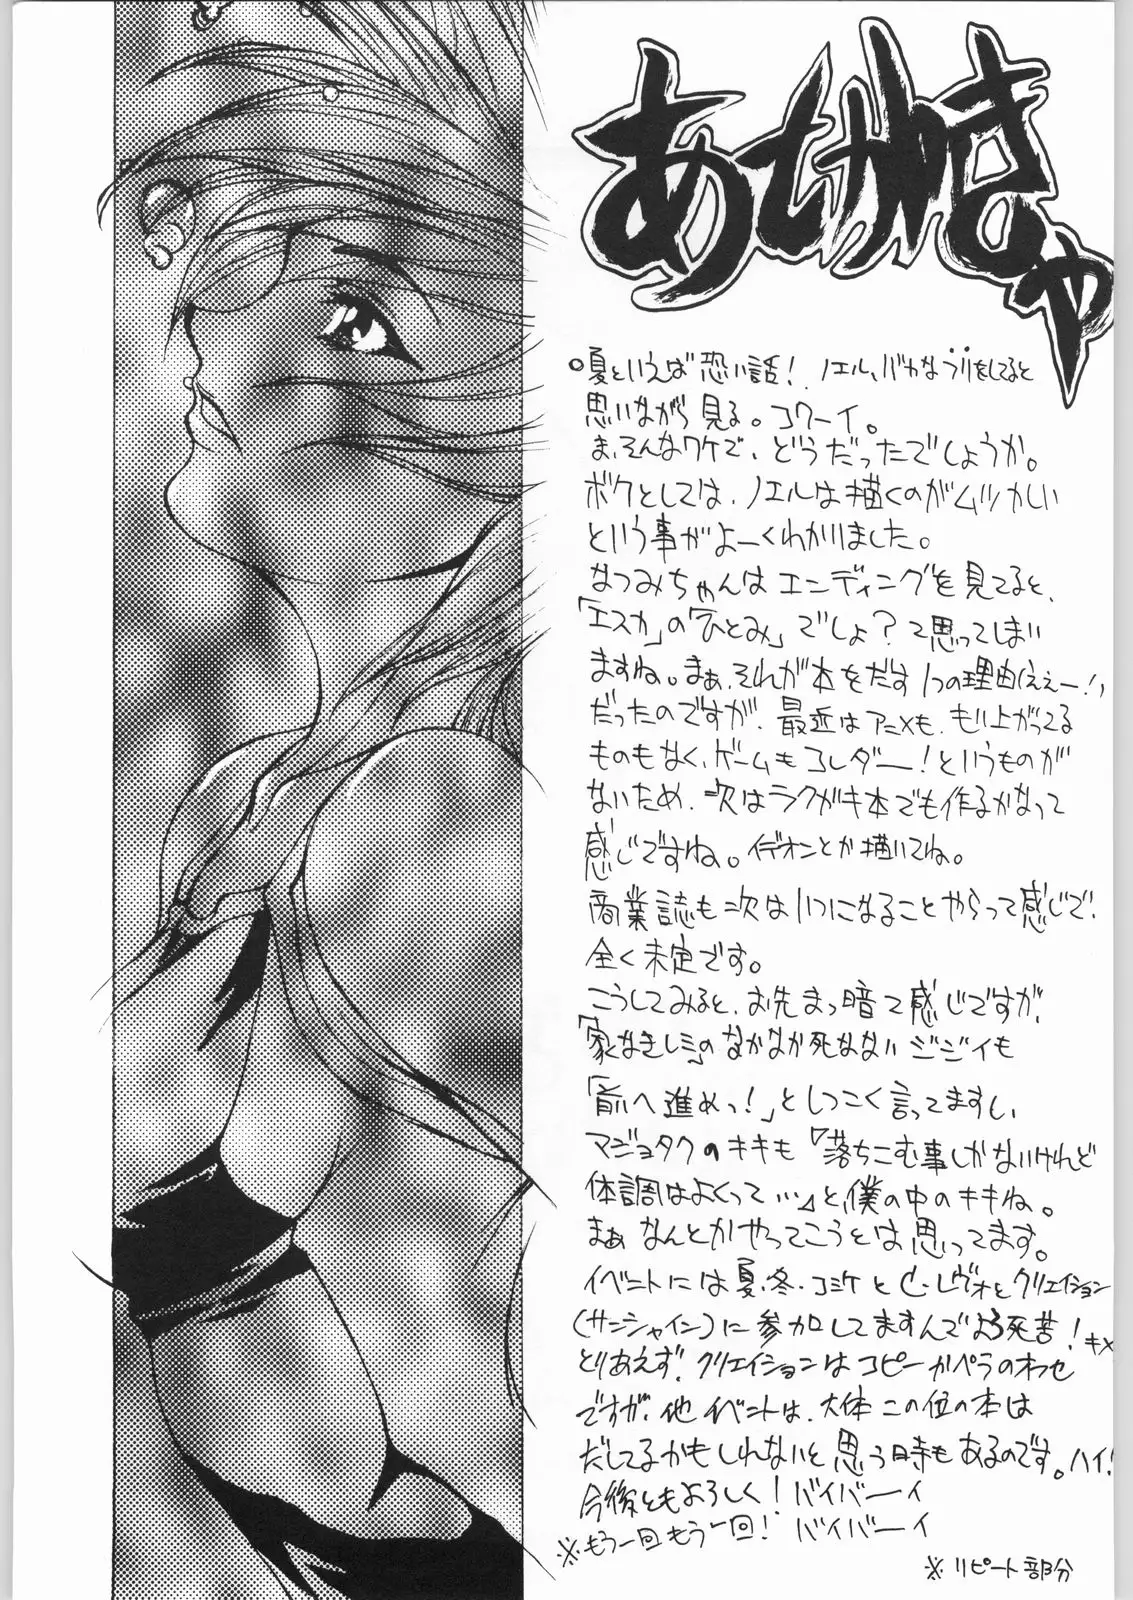 あとがきゃ
。夏といえば恐い話! ノエル、バカなフリをしてると
思いながら見る。コワーイ。
ま、そんなワケで、どうだったでしょうか。
ボクとしては、ノエルは描くのがムツかしい
という事がよーくわかりました。
なつみちゃんはエンディングを見てると、
「エスカ」の「ひとみ」でしょ?て思ってしまい
ますね。まぁ、それが本をだす1つの理由(ええー!)
だったのですが、最近はアニメも、もり上がってる
ものもなく、ゲームもコレダー!というものが
ないため、次はラクガキ本でも作るかなって
感じですね。イデオンとか描いてね。
商業誌も次はいつになることやらって感じで、
全く未定です。
こうしてみると、お先まっ暗て感じですが、
「家なきレミ」のなかなか死なないジジイも
「前へ進めっ!」としつこく言ってますし、
マジョタクのキキも「落ちこむ事しかないけれど
体調はよくって…」と、僕の中のキキね。
まぁなんとかやってこうとは思ってます。
イベントには夏・冬・コミケとC・レヴォとクリエイション
(サンシャイン)に参加してますんでよろ死苦! キメ
とりあえず!クリエイションはコピーかペラのオフセ
ですが、他イベントは、大体この位の本は
だしてるかもしれないと思う時もあるのです。ハイ!
今後ともよろしく! バイバーイ
※もう一回もう一回! バイバーイ
※リピート部分